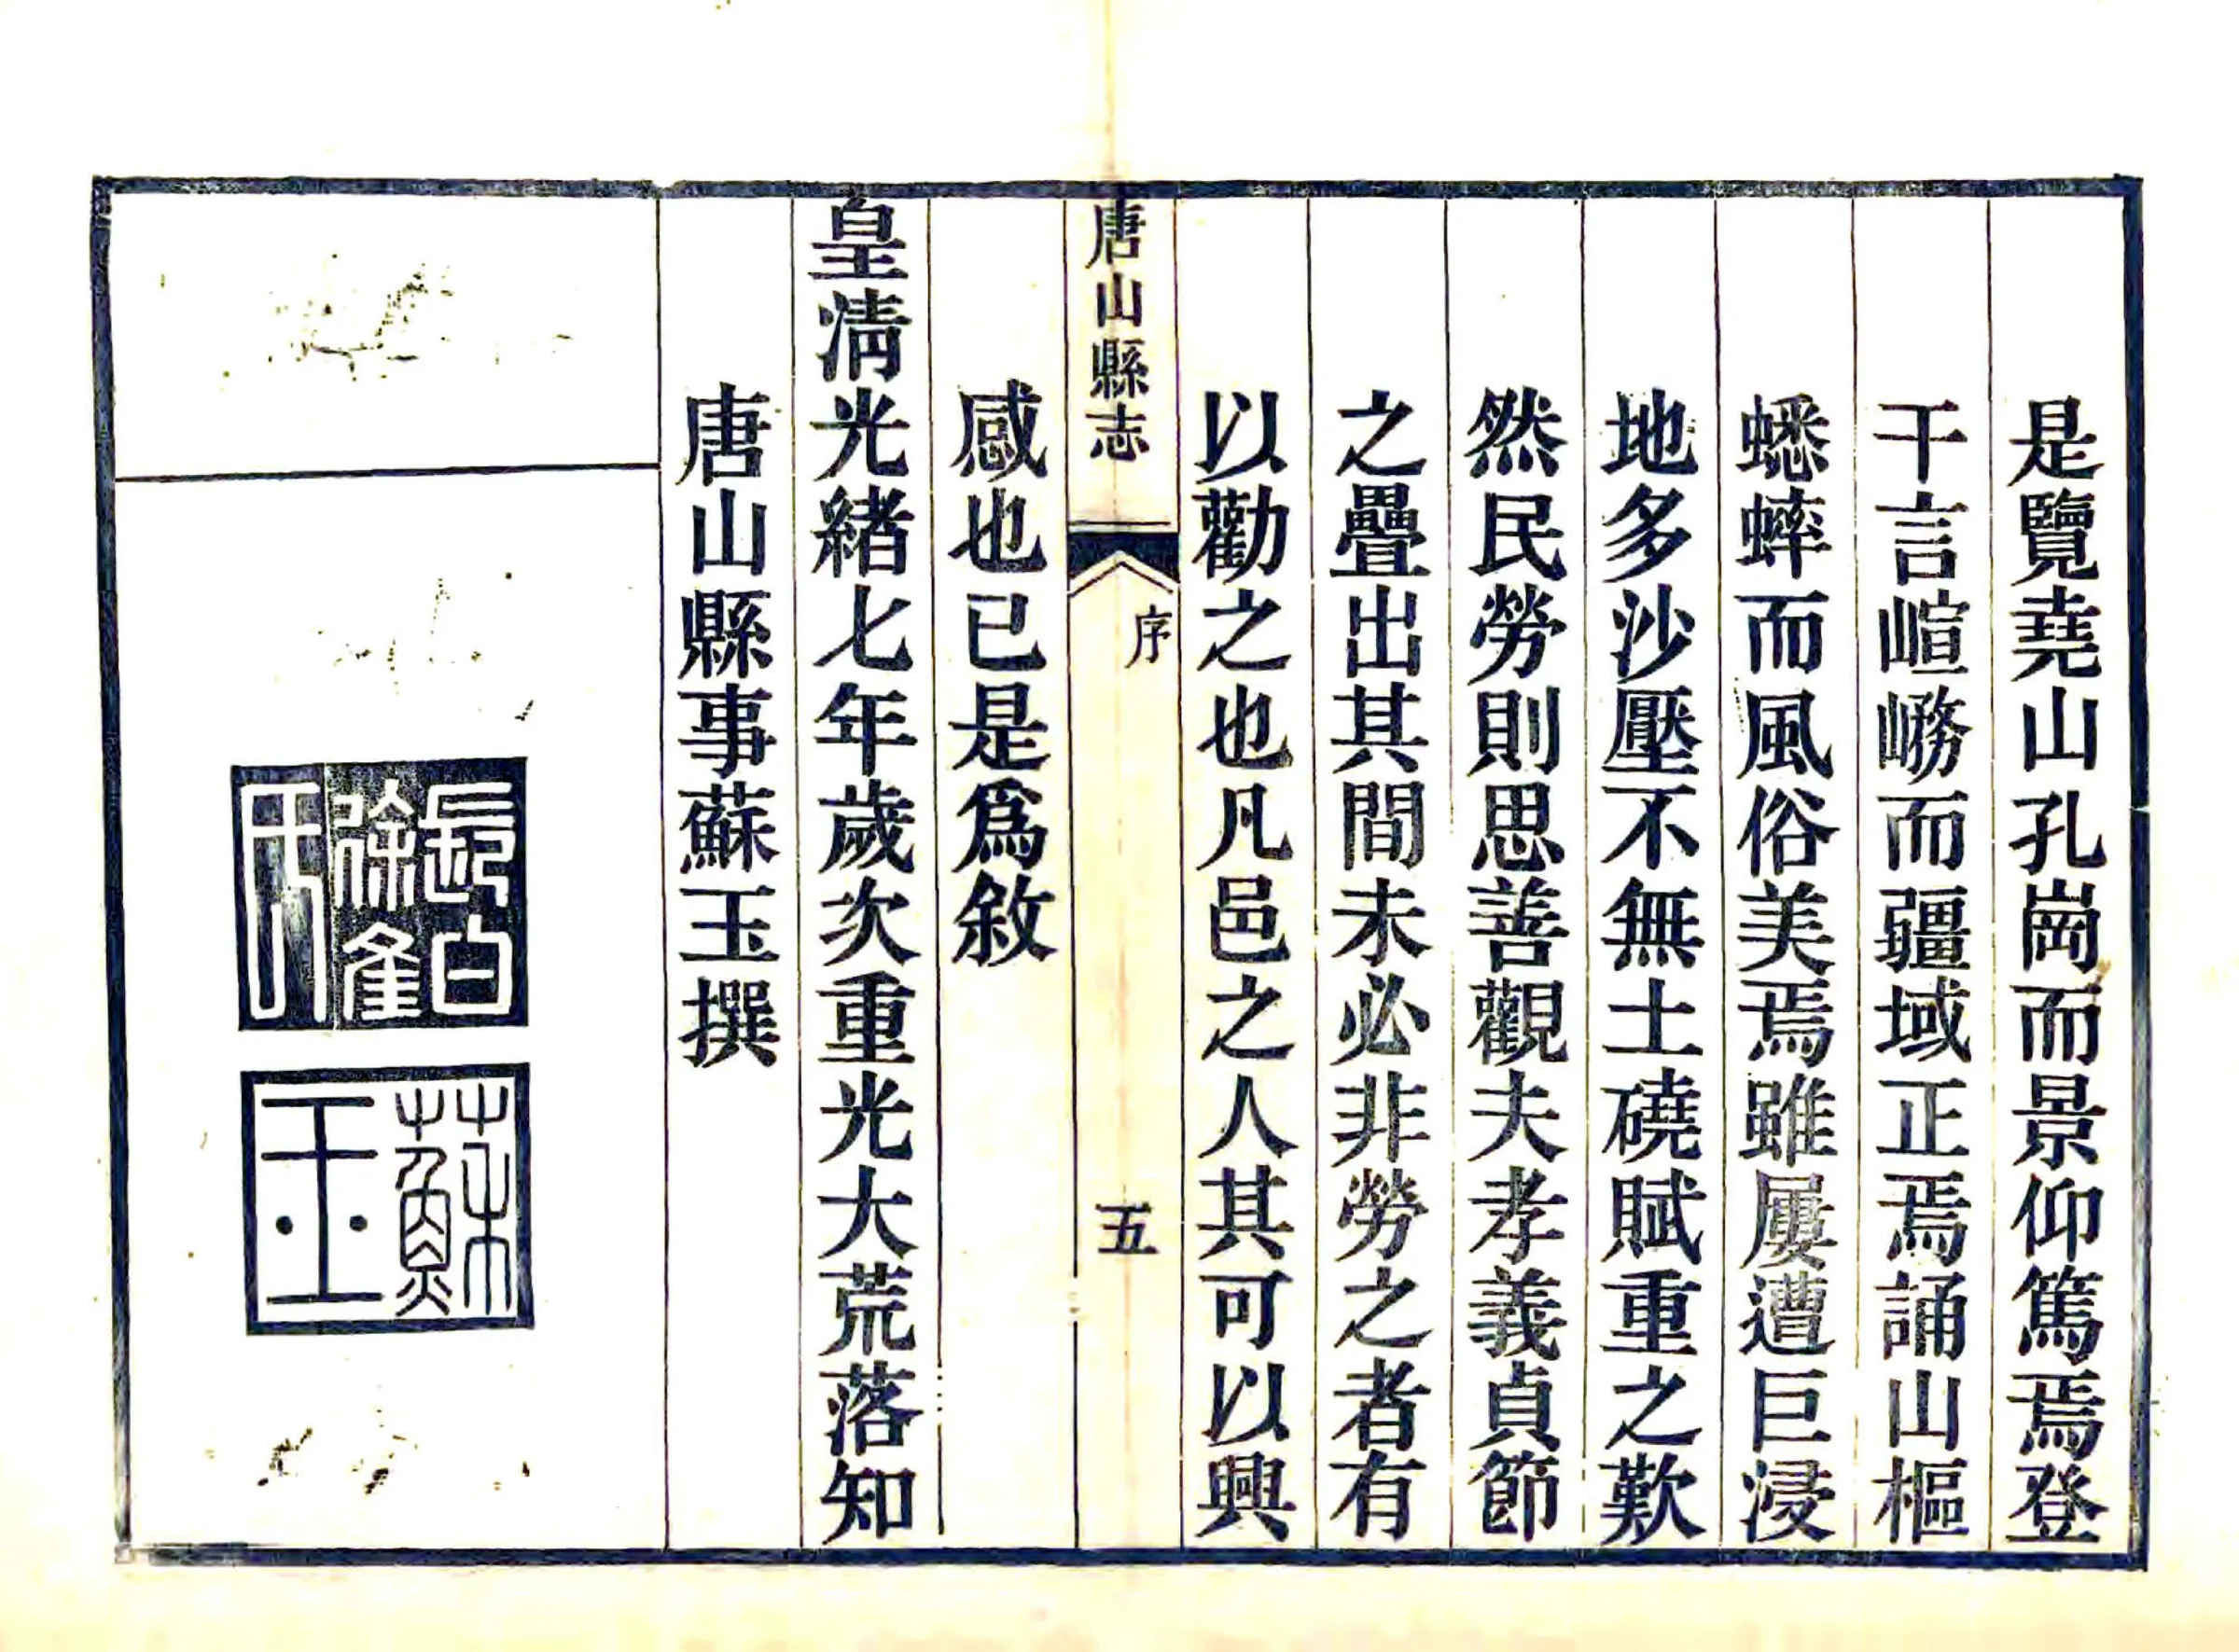 是覽堯山孔崗而景仰篤焉登
干言嵮嵍而疆域正焉誦山樞
蟋蟀而風俗美焉雖屢遭巨浸
地多沙壓不無土磽賦重之歎
然民勞則思善觀夫孝義貞節
之疊出其間未必非勞之者有
以勸之也凡邑之人其可以興
唐山縣志
序
五
感也已是爲敘
皇淸光緒七年歲次重光大荒落知
唐山縣事蘇玉撰
長白
徐雀
氏
蘇
玉